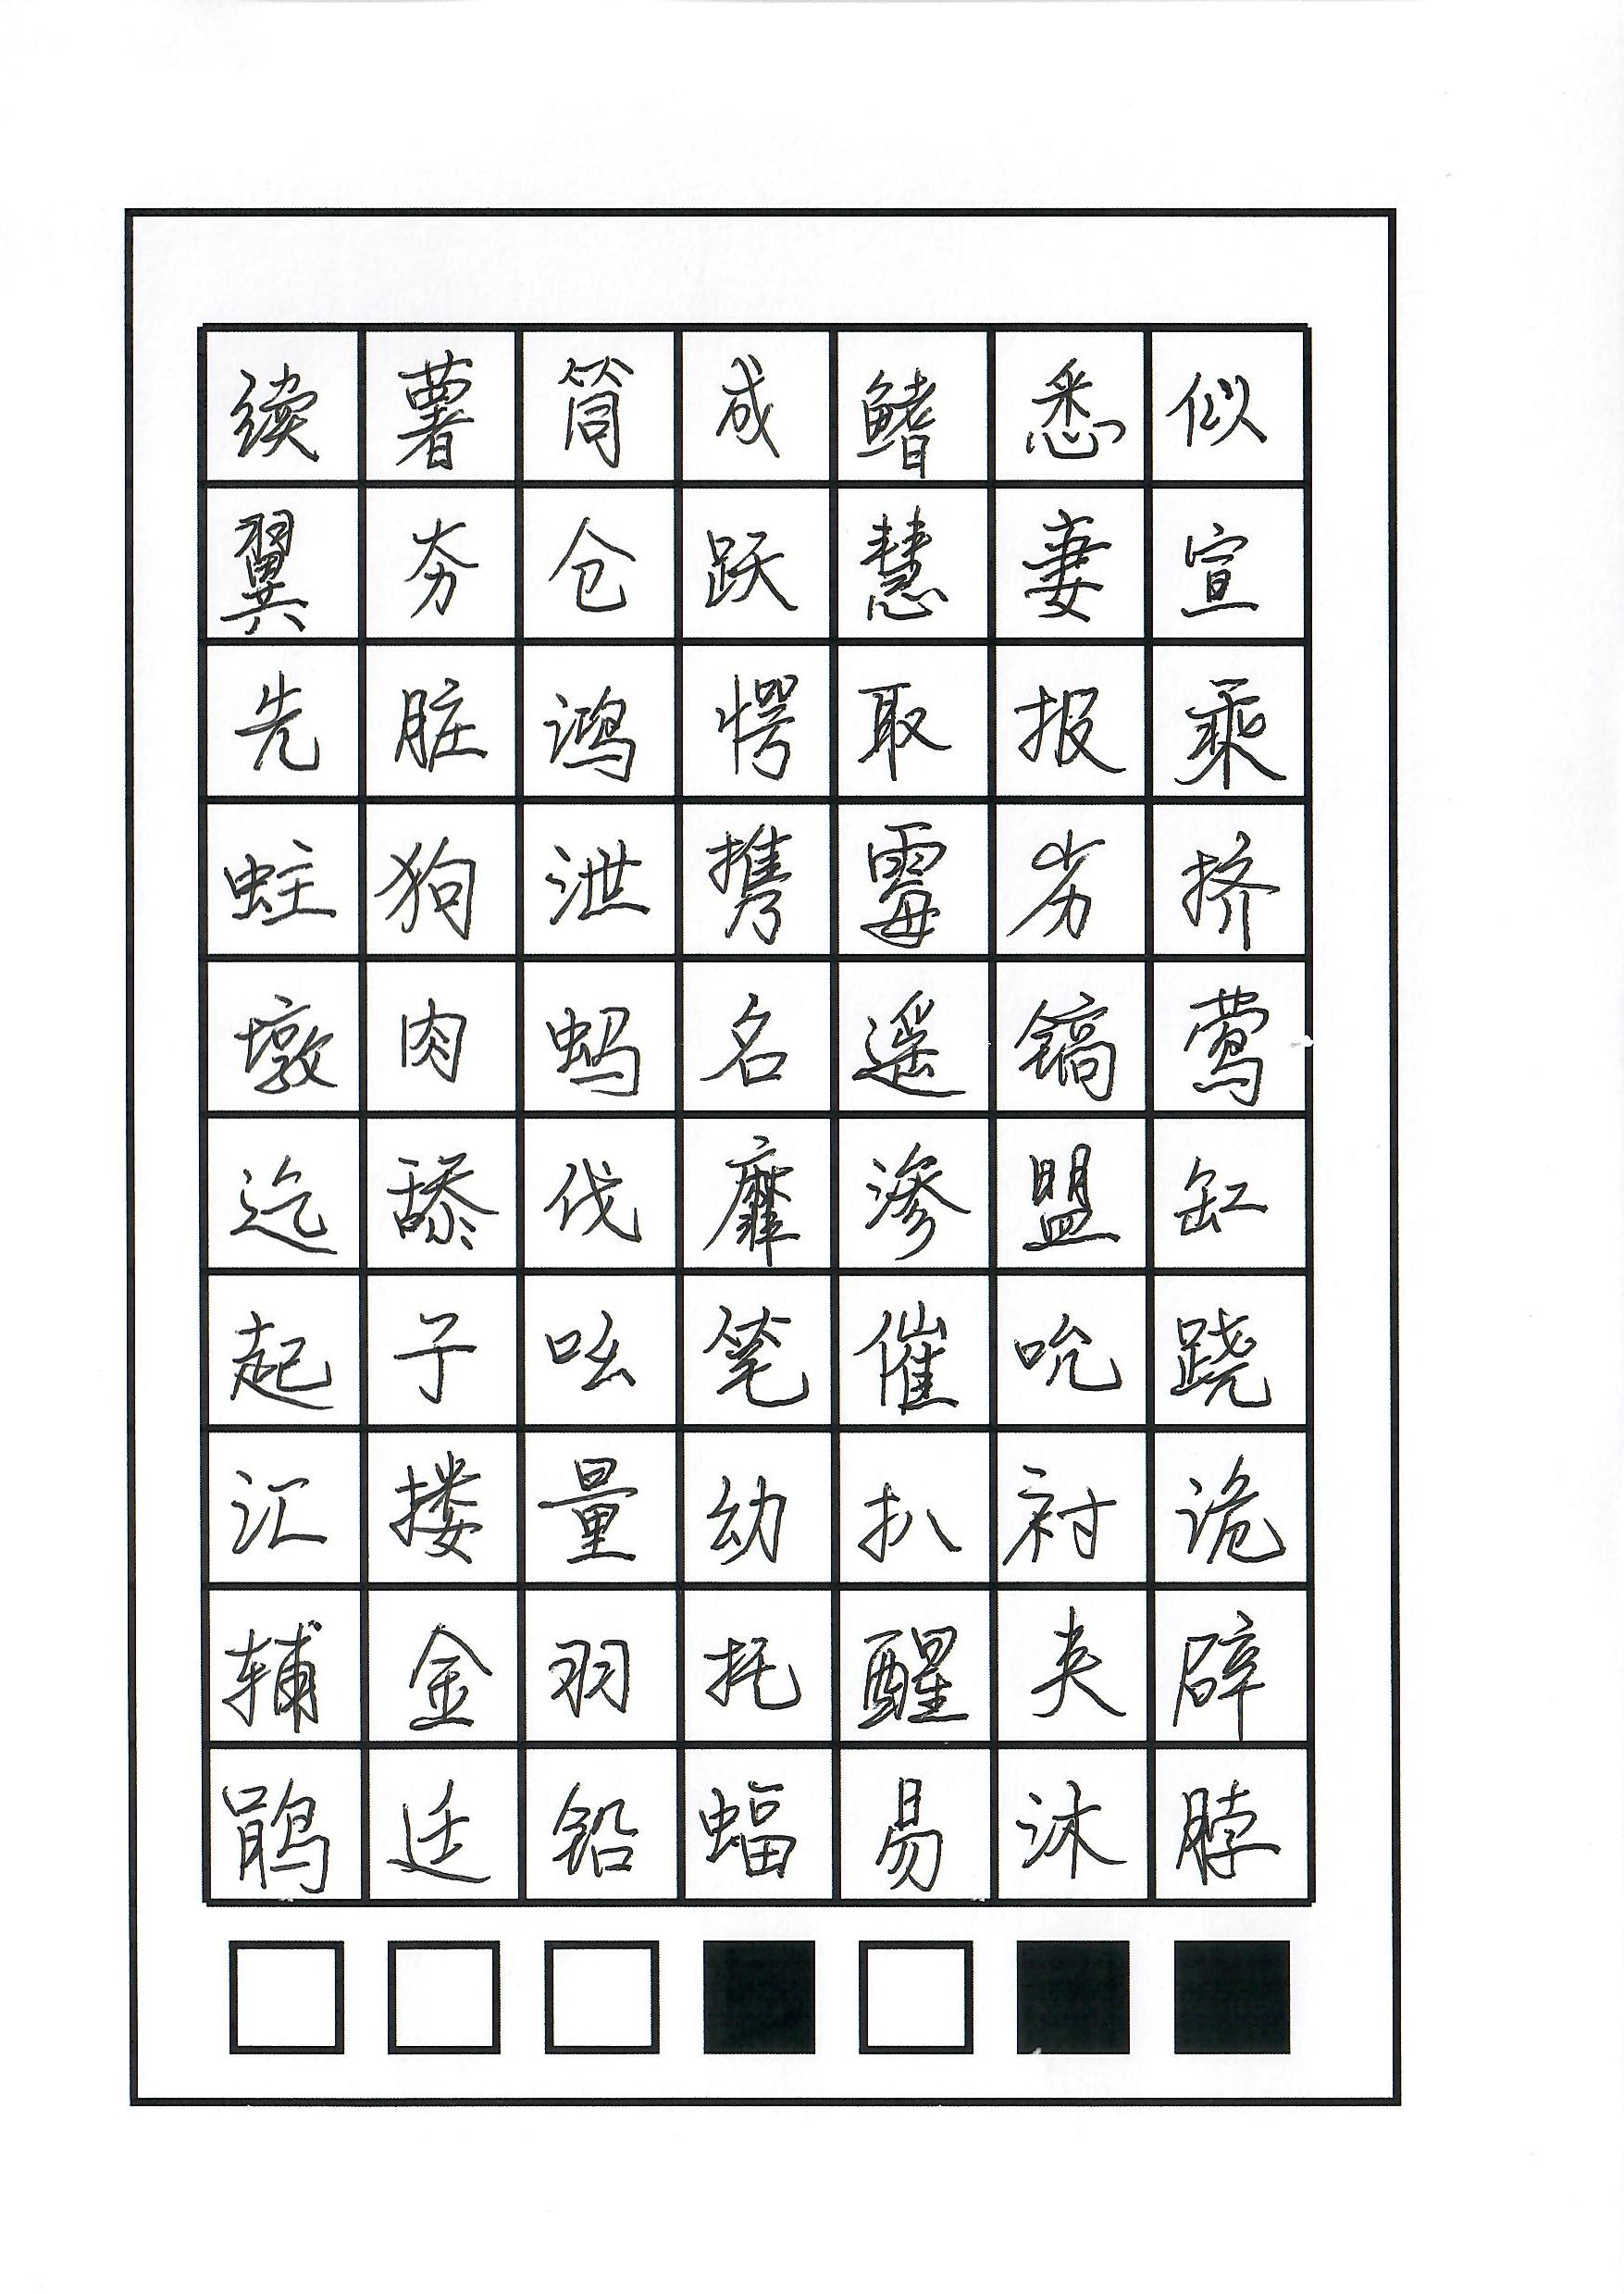 续薯筒成鳍悉似
翼夯仓跃慧妻宣
先脏鸿愕取报乘
蛀狗泄携霉劣挤
墩肉蚂名遥镐莺
迄舔伐靡渗盟缸
起子吆笔催吮跷
汇搂量幼扒衬诡
辅金羽托醒夹辟
鹃廷铅蝠易沐脖